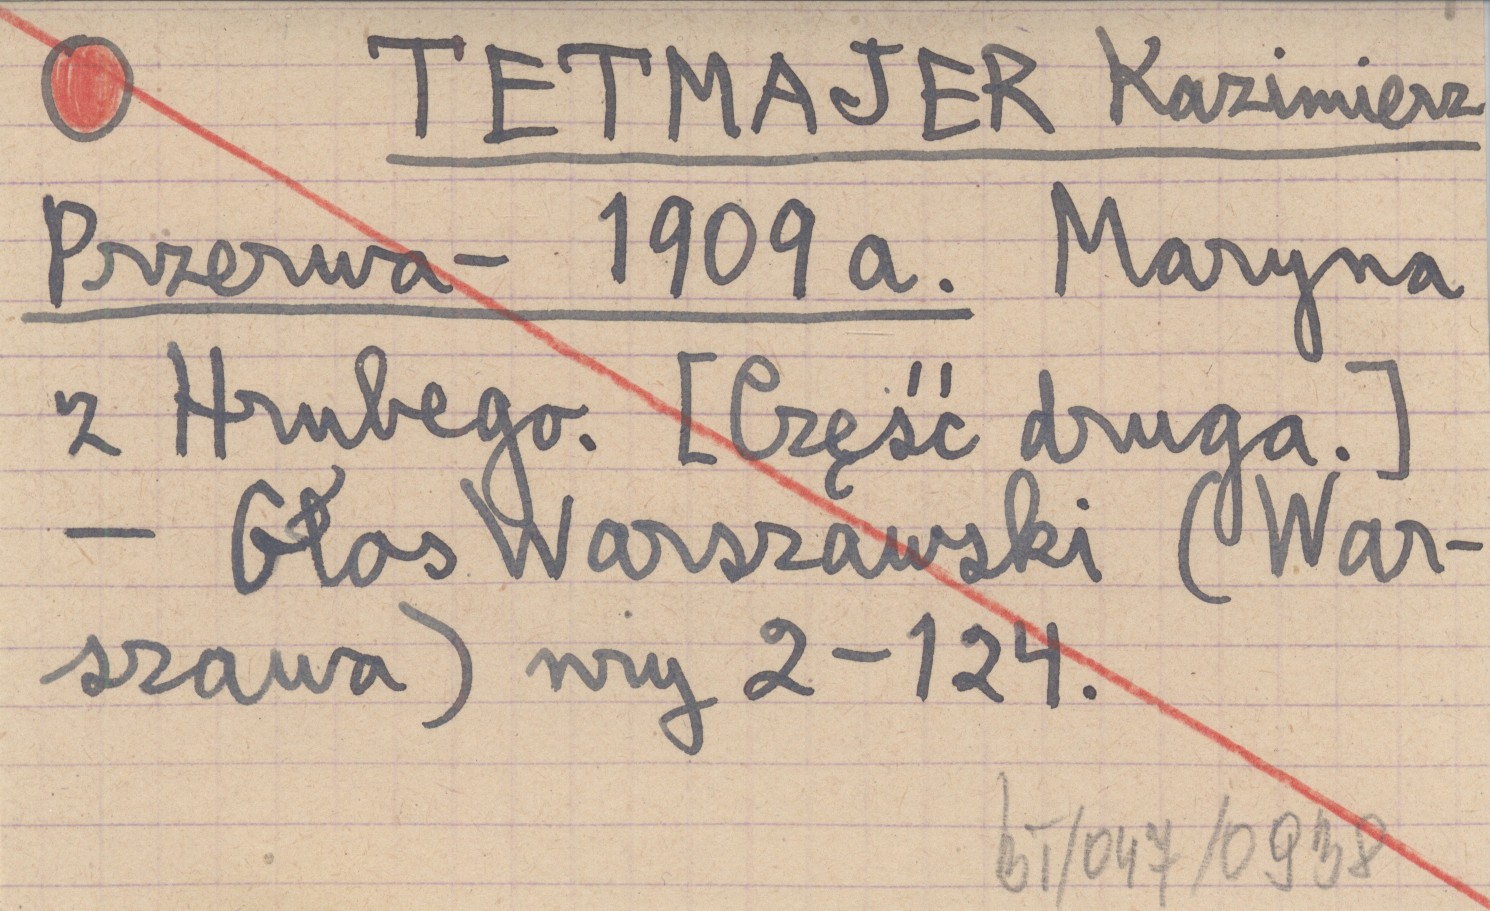 TETMAJER Kazimierz
Przerwa- 1909 a. Maryna
z Hrubego. [Część druga.]
- Głos Warszawski (War-
szawa) nry 2-124.
bT/047/0938